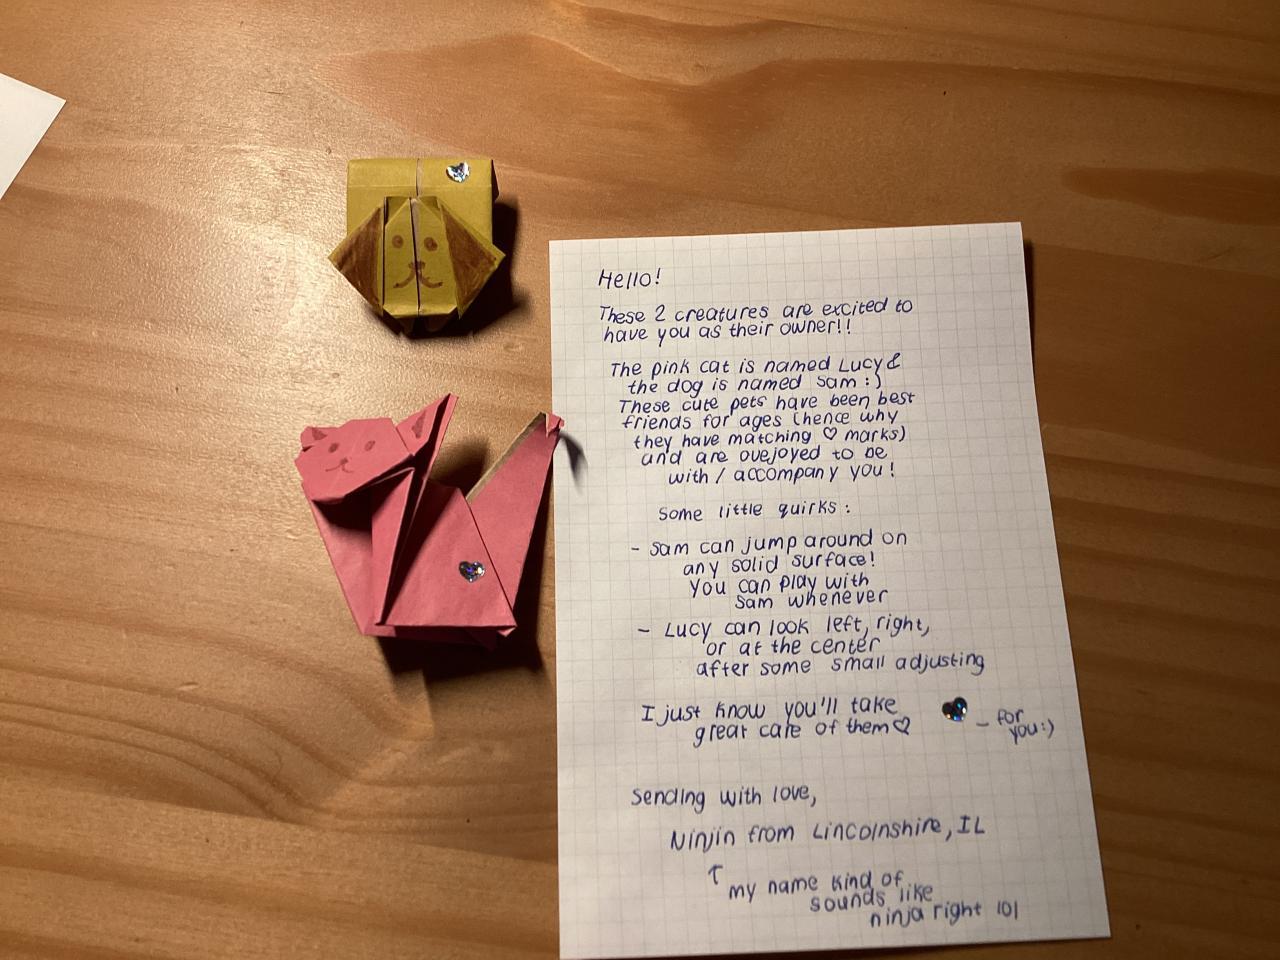 Hello!
These 2 creatures are excited to
have you as their owner!!
The pink cat is named Lucy &
the dog is named Sam :)
These cute pets have been best
friends for ages (hence why
they have matching ♡ marks)
and are ovejoyed to be
with / accompany you!
Some little quirks:
- Sam can jump around on
any solid surface!
You can play with
Sam whenever
- Lucy can look left, right,
or at the center
after some small adjusting
I just know you'll take
great care of them♡
- for
you:)
Sending with love,
Ninjin from Lincolnshire, IL
↑
my name kind of
sounds like
ninja right lol